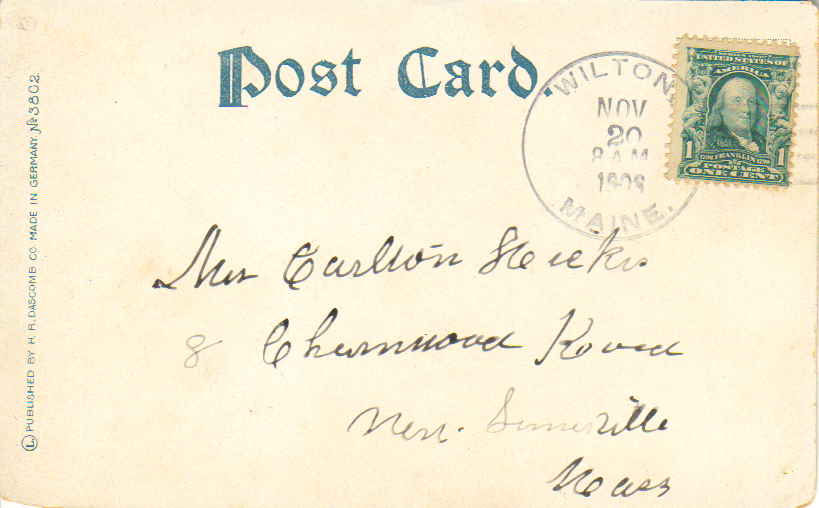 Post Card.
WILTON,
NOV
20
8 AM
MAINE.
UNITED STATES OF
AMERICA
1 FRANKLIN 1
POSTAGE
ONE CENT
Carlton
8 Charnwood Road
Somerville
Mass
L PUBLISHED BY H. R. DASCOMB CO. MADE IN GERMANY. No 3802.